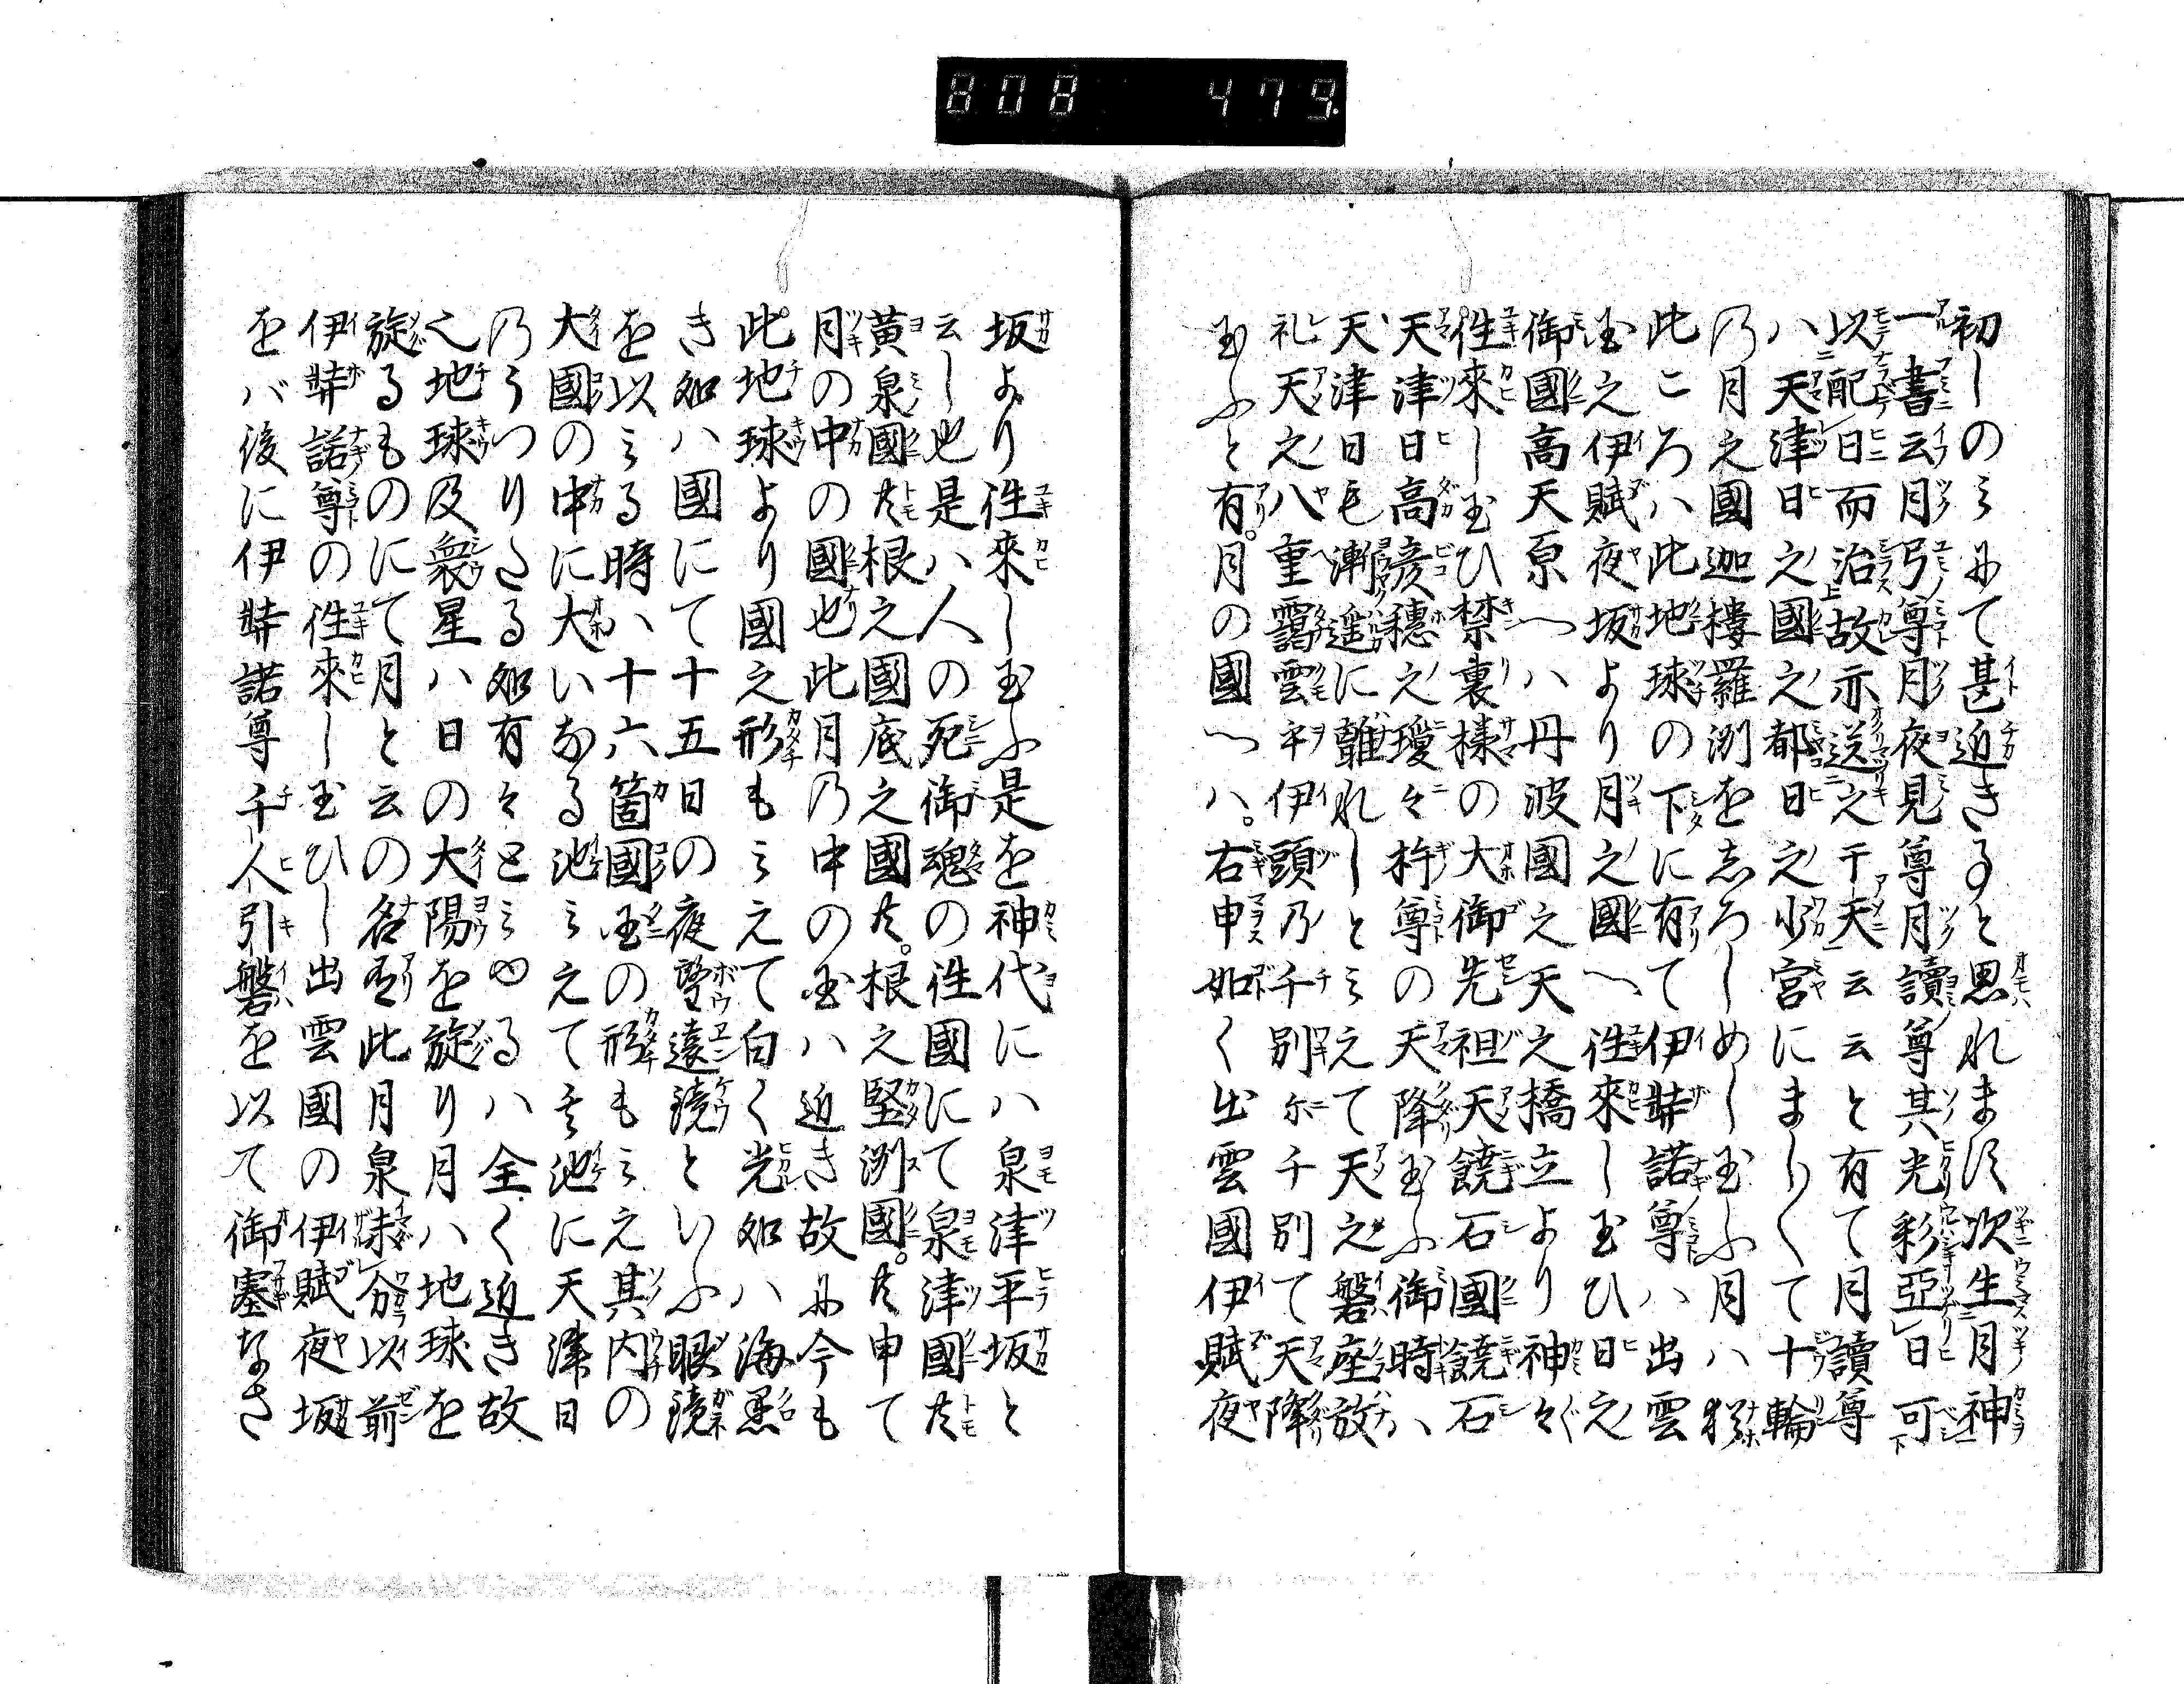 808 479
初しのミにて甚近きるると思れます次生月神
一書云月弓尊月夜見尊月讀尊其光彩亞日可
以配日而治故亦送之于天云云と有て月讀尊
ハ天津日之國之都日之少宮にましくて十輪
乃月之國迦樓羅洲をしろしめし玉ふ月ハ猶
此ころハ此地球の下に有て伊弉諾尊ハ出雲
國之伊賦夜坂より月之國へ徃來し玉ひ日之
御國高天原へハ丹波國之天之橋立より神々
徃來し玉ひ禁裏様の大御先祖天饒石國饒石
天津日高彦穗之瓊々杵尊の天降玉ふ御時ハ
天津日毛漸遥に離れしとミえて天之磐座放
礼天之八重靄雲乎伊頭乃千別尓千別て天降
玉ふと有。月の國へハ。右申如く出雲國伊賦夜
坂より徃來し玉ふ是を神代にハ泉津平坂と
云し也是ハ人の死御魂の徃國にて泉津國共
黄泉國共根之國底之國共。根之堅洲國。共申て
月の中の國也此月乃中の國ハ近き故に今も
此地球より國之形もミえて白く光処ハ海黒
き処ハ國にて十五日の夜望遠鏡といふ眼鏡
を以ミる時ハ十六箇國国の形もミえ其内の
大國の中に大いなる池ミえて其池に天津日
乃うつりたる処有々とミゆるハ全く近き故
く地球及衆星ハ日の大陽を旋り月ハ地球を
旋るものにて月と云の名有此月泉未分以前
伊弉諾尊の徃來し玉ひし出雲國の伊賦夜坂
をバ後に伊弉諾尊千人引磐を以て御塞なさ